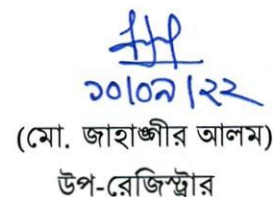 ১০/০৯/২২
(মো. জাহাঙ্গীর আলম)
উপ-রেজিস্ট্রার